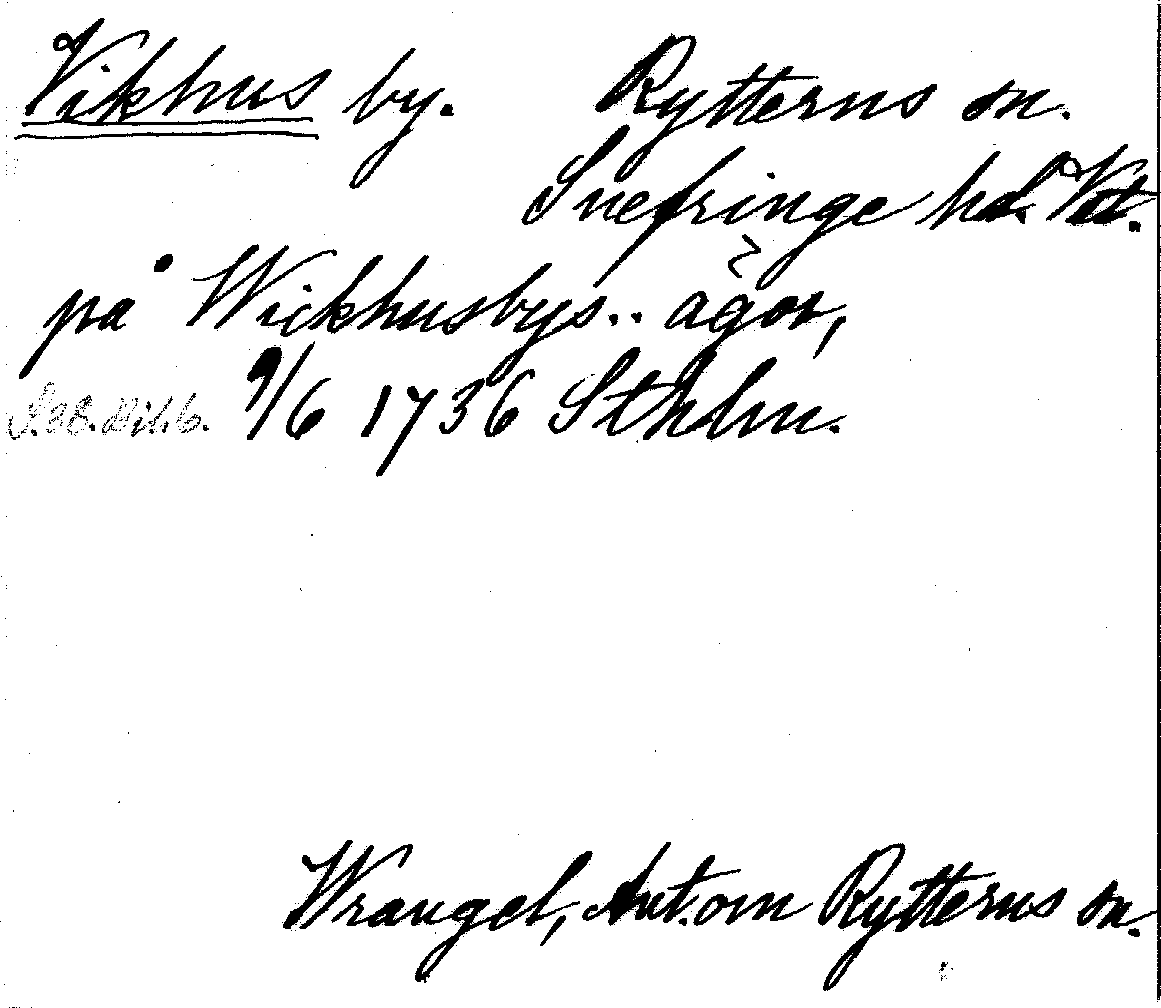 Vikhus by. Rytterns sn.
Snefringe hd. Vst.
på Wickhusbys.. ägor,
9/6 1736 Sthlm.
Wrangel, Ant. om Rytterns sn.